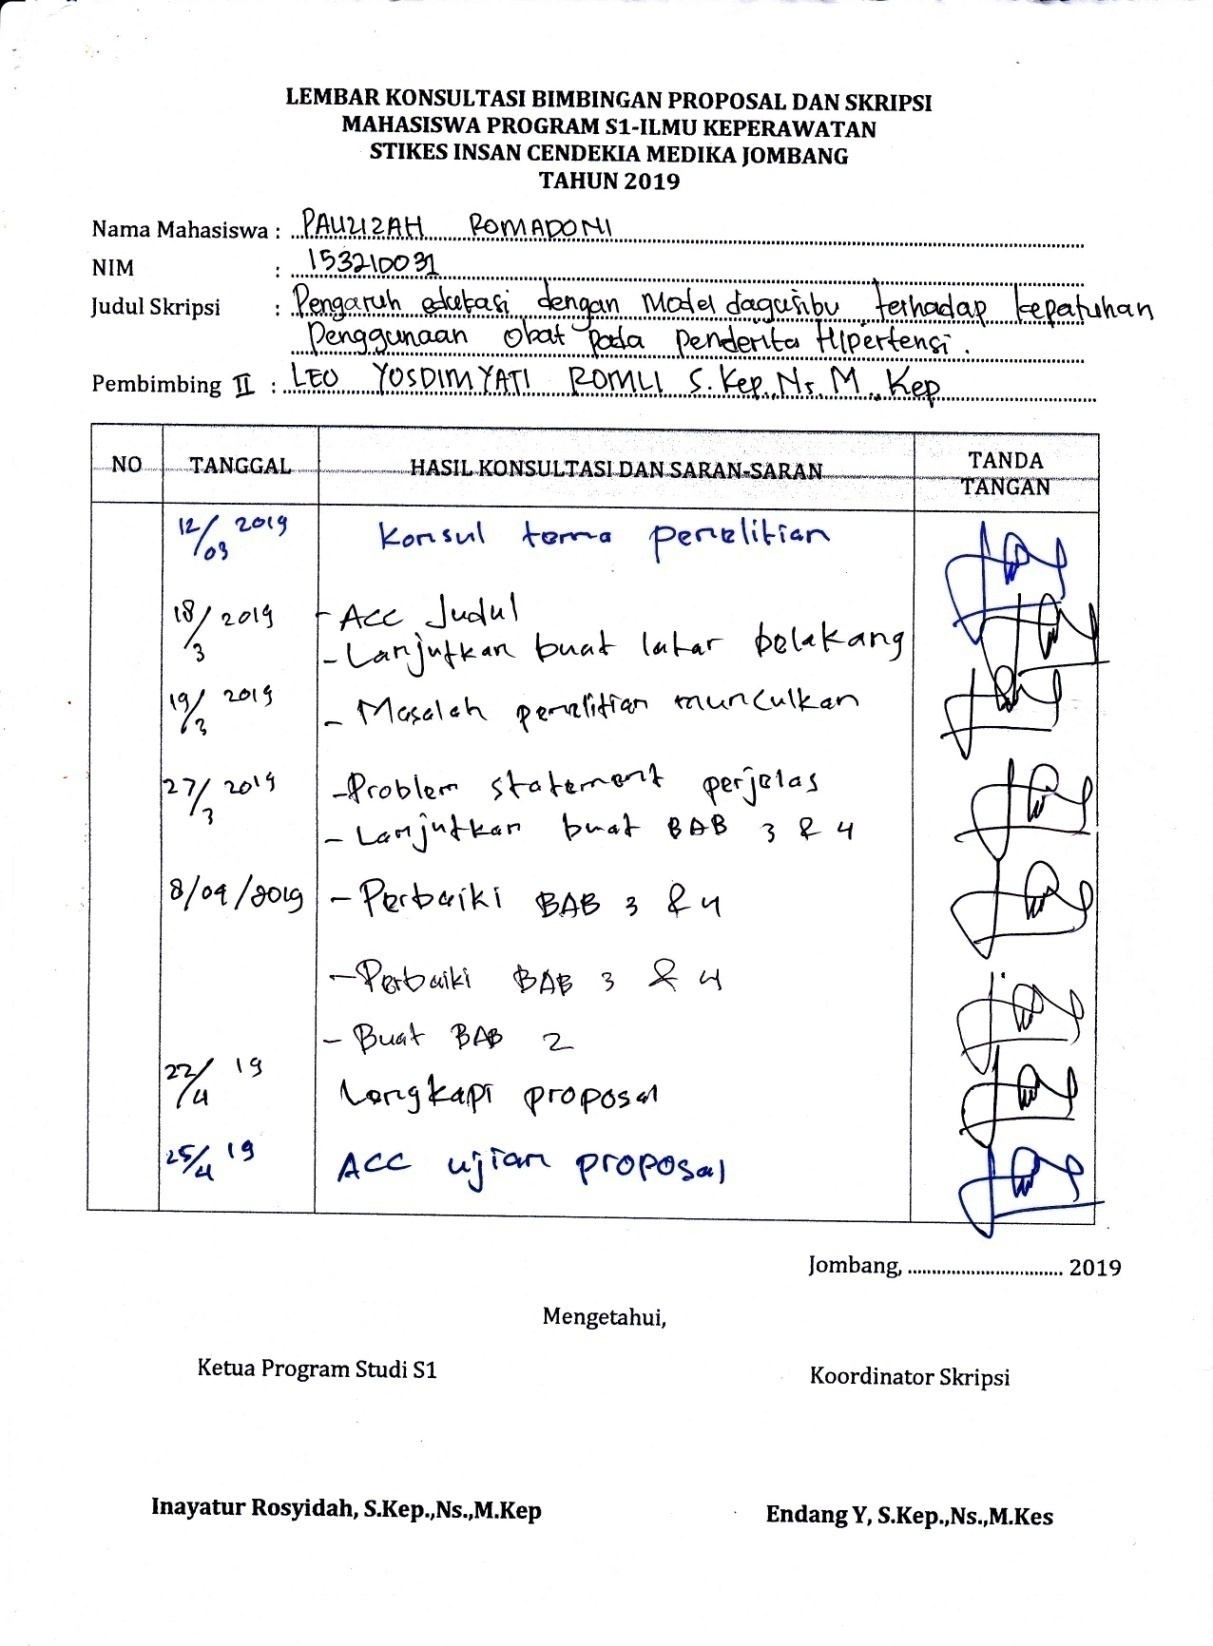 LEMBAR KONSULTASI BIMBINGAN PROPOSAL DAN SKRIPSI
MAHASISWA PROGRAM S1-ILMU KEPERAWATAN
STIKES INSAN CENDEKIA MEDIKA JOMBANG
TAHUN 2019
Nama Mahasiswa : PAUZIZAH ROMADONI
NIM : 153210031
Judul Skripsi : Pengaruh edukasi dengan Model dagusibu terhadap kepatuhan
Penggunaan Obat pada Penderita Hipertensi.
Pembimbing II : LEO YOSDIMYATI ROMLI S.Kep,.Ns.M.,Kep
NO TANGGAL HASIL KONSULTASI DAN SARAN-SARAN TANDA TANGAN
12/03 2019 Konsul tema penelitian
18/3 2019 - ACC Judul
- Lanjutkan buat latar belakang
19/3 2019 - Masalah penelitian munculkan
27/3 2019 - Problem statement perjelas
- Lanjutkan buat BAB 3 & 4
8/04/2019 - Perbaiki BAB 3 & 4
- Perbaiki BAB 3 & 4
- Buat BAB 2
22/4 19 Lengkapi proposal
25/4 19 ACC ujian proposal
Jombang, .............................. 2019
Mengetahui,
Ketua Program Studi S1 Koordinator Skripsi
Inayatur Rosyidah, S.Kep.,Ns.,M.Kep Endang Y, S.Kep.,Ns.,M.Kes